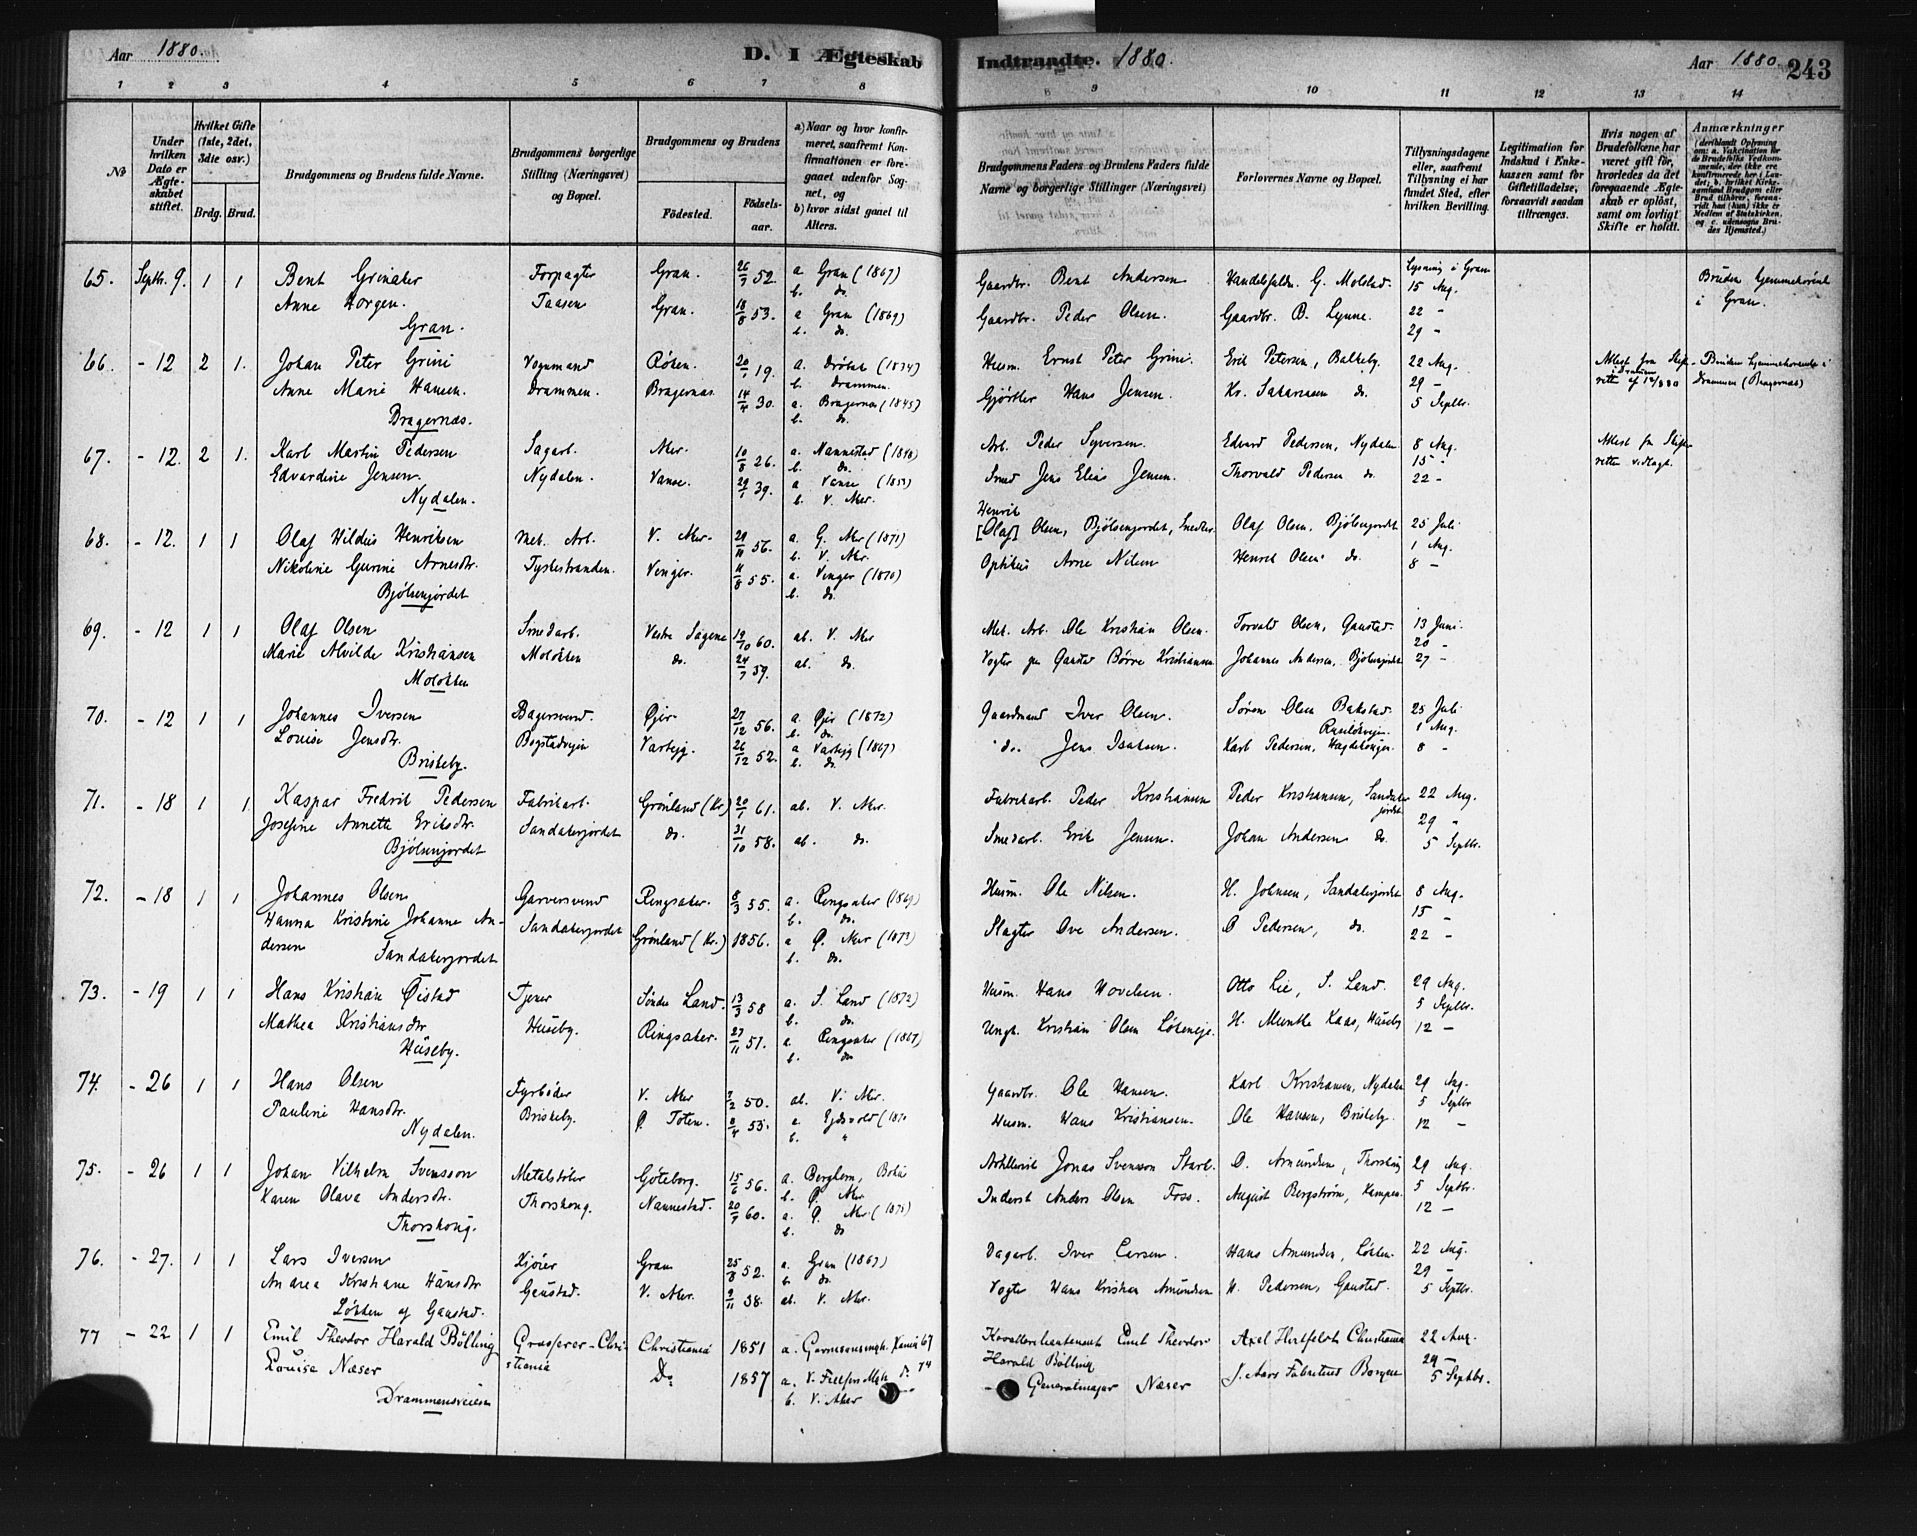 Aar 1880.
D. I Ægteskab Indtraadte. 1880.
Aar 1880. 243
1 2 3 4 5 6 7 8 9 10 11 12 13 14
No
Under hvilken Dato er Ægteskabet stiftet.
Hvilket Gifte (1ste, 2det, 3die osv.)
Brdg. Brud.
Brudgommens og Brudens fulde Navne.
Brudgommens borgerlige Stilling (Næringsvei) og Bopæl.
Brudgommens og Brudens
Fødested. Fødselsaar.
a) Naar og hvor konfirmeret, saafremt Konfirmationen er foregaaet udenfor Sognet, og
b) hvor sidst gaaet til Alters.
Brudgommens Faders og Brudens Faders fulde Navne og borgerlige Stillinger (Næringsvei)
Forlovernes Navne og Bopæl.
Tillysningsdagene eller, saafremt Tillysning ei har fundet Sted, efter hvilken Bevilling.
Legitimation for Indskud i Enkekassen samt for Giftetilladelse, forsaavidt saadan tiltrænges.
Hvis nogen af Brudefolkene har været gift før, hvorledes da det foregaaende Ægteskab er opløst, samt om lovligt Skifte er holdt.
Anmærkninger
65. Septbr. 9. 1 1 Bent Grinaker Forpagter Gran. 26/7 52. a Gran (1867) Gaardbr. Bent Andersen Handelsfuldm. G. Molstad. Lysning i Gran 15 Aug. Bruden hjemmehørende i Gran.
Anne Horgen. Taasen Gran. 18/8 53. a Gran (1869) Gaardbr. Peder Olsen. Gaardbr. B. Lynne. 22 -
Gran. b. do. 29 -
66. - 12 2 1. Johan Peter Grini Vognmand Røken. 20/1 19. a. Drøbak (1834) Husm. Ernst Peter Grini. Erik Petersen, Balkeby. 22 Aug.
Anne Marie Hansen. Drammen. Bragernæs. 14/4 30. b. Drammen. a. Bragernæs (1845) Gjørtler Hans Jensen. Kr. Sakariasen do. 29 -
Bragernæs. b. do. 5 Septbr.
67. - 12. 2 1. Karl Martin Pedersen Sagarb. Aker. 10/8 26. a. Nannestad Arb. Peder Syversen. Edvard Pedersen, Nydalen 8 Aug.
Edvardine Jensen. Nydalen. Vanse. 29/1 39. a Vanse Smed Jens Elias Jensen. Thorvald Pedersen do. 15 -
Nydalen. b. V. Aker. 22 -
68. - 12. 1 1 Olaf Hildus Henriksen Mek. Arb. V. Aker. 29/11 56. a. G. Aker (1871) Henrik [Olaf] Olsen, Bjølsenjordet, Smedarb. Olaf Olsen, Bjølsenjordet 25 Juli
Nikoline Gurine Arnesdtr. Tyskestranden. Vinger. 11/8 55. a. Vinger (1870) Optikus Arne Nilsen Henrik Olsen do. 1 Aug.
Bjølsenjordet b. do. 8 -
69. - 12 1 1 Olaf Olsen Smedarb. Vestre Sagene 19/10 60. ab. V. Aker Mek. Arb. Ole Kristian Olsen. Torvald Olsen, Gaustad. 13 Juni.
Marie Alvilde Kristiansen Moløkken do. 24/7 59. ab. do. Vogter paa Gaustad Børre Kristiansen Johannes Andersen, Bjølsenjordet 20 -
Moløkken 27 -
70. - 12 1 1 Johannes Iversen Bagersvend. Øjer 27/12 56. a. Øjer (1872) Gaardmand Iver Olsen. Søren Olsen Bakstad. 25 Juli
Louise Jensdtr. Bogstadvejen Varteig. 26/12 52. a Varteig (1867) do. Jens Isaksen. Karl Pedersen, 1 Aug.
Briskeby. b. do. 8 -
71. - 18 1 1 Kaspar Fredrik Pedersen Fabrikarb. Grønland (Kr.) 20/1 61. ab. V. Aker. Fabrikarb. Peder Kristiansen Peder Kristiansen, Sandakerjordet 22 Aug.
Josefine Annette Eriksdtr. Sandakerjordet do. 31/10 58. ab. do. Smedarb. Erik Jensen. Johan Andersen do. 29 -
Bjølsenjordet 5 Septbr.
72. - 18 1 1 Johannes Olsen Garversvend Ringsaker. 8/3 55. a. Ringsaker (1869) Husm. Ole Nilsen. H. Johnsen, Sandakerjordet 8 Aug.
Hanna Kristine Johanne Andersen Sandakerjordet Grønland (Kr.) 1856. a Ø. Aker Slagter Ove Andersen. O Pedersen, do. 15 -
Sandakerjordet b. do. 22 -
73. - 19 1 1 Hans Kristian Øistad Tjener Søndre Land. 13/3 58 a. S. Land (1872) Husm. Hans Hovelsen. Otto Lie, S. Land. 29 Aug.
Mathea Kristiansdtr Huseby. Ringsaker. 27/11 51. a. Ringsaker (1867) Ungk. Kristian Olsen H. Munthe Kaas, Huseby 5 Septbr.
Huseby. b. do 12 -
74. - 26 1 1 Hans Olsen Fyrbøder V. Aker 7/2 50. ab. V. Aker. Gaardbr. Ole Hansen. Karl Kristiansen, Nydalen 29 Aug.
Pauline Hansdtr. Briskeby. Ø. Toten. 8/4 55. a. Ejdsvold Husm. Hans Kristiansen. Ole Hansen, Briskeby. 5 Septbr
Nydalen. 12 -
75. - 26 1 1 Johan Vilhelm Svensson Metalstøber Gøteborg. 15/6 56. a. Jonas Svensson O. Amundsen, Thorshaug 29 Aug.
Karen Olava Andersdtr. Thorshoug. Nannestad. 20/7 60. a. Ø. Aker Inderst Anders Olsen Foss. August Bergstrøm, Kampen. 5 Septbr.
Thorshoug. b. do 12 -
76. - 27. 1 1 Lars Iversen Kjører Gran 25/8 52. a. Gran Dagarb. Iver Larsen. Hans Amundsen, Løkken. 22 Aug.
Andrea Kristiane Hansdtr Gaustad. V. Aker. 9/11 38. ab. V. Aker. Vogter Hans Kristian Amundsen H. Pedersen, Gaustad. 29 -
Løkken af Gaustad. 5 Septbr.
77 - 22 1 1 Emil Theodor Harald Bölling Grosserer - Christiania Christiania 1851 a. Kavallerilieutenant Emil Theodor Harald Bölling Axel Christiania 22 Aug.
Louise Næser Do 1857 a. V. Generalmajor Næser J. Aars 29 -
Drammensveien b. V. Aker 5 Septbr.